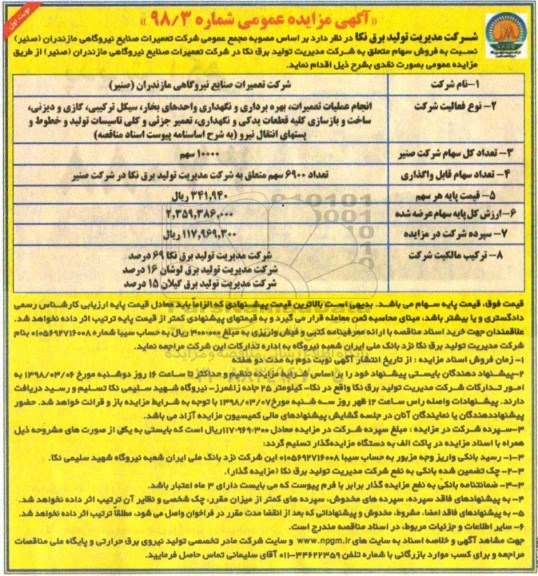 نوبت اول
«آگهی مزایده عمومی شماره ۹۸/۳»
شرکت مدیریت تولید برق نکا در نظر دارد بر اساس مصوبه مجمع عمومی شرکت تعمیرات صنایع نیروگاهی مازندران (صنیر)
نسبت به فروش سهام متعلق به شرکت مدیریت تولید برق نکا در شرکت تعمیرات صنایع نیروگاهی مازندران (صنیر) از طریق
مزایده عمومی بصورت نقدی بشرح ذیل اقدام نماید.
۱- نام شرکت
شرکت تعمیرات صنایع نیروگاهی مازندران (صنیر)
۲- نوع فعالیت شرکت
انجام عملیات تعمیرات، بهره برداری و نگهداری واحدهای بخار، سیکل ترکیبی، گازی و دیزنی،
ساخت و بازسازی کلیه قطعات یدکی و نگهداری، تعمیر جزئی و کلی تاسیسات تولید و خطوط و
پستهای انتقال نیرو (به شرح اساسنامه پیوست اسناد مناقصه)
۳- تعداد کل سهام شرکت صنیر
۱۰۰۰۰ سهم
۴- تعداد سهام قابل واگذاری
تعداد ۶۹۰۰ سهم متعلق به شرکت مدیریت تولید برق نکا در شرکت صنیر
۵- قیمت پایه هر سهم
۳۴۱,۹۴۰ ریال
۶- ارزش کل پایه سهام عرضه شده
۲,۳۵۹,۳۸۶,۰۰۰
۷- سپرده شرکت در مزایده
۱۱۷,۹۶۹,۳۰۰ ریال
۸- ترکیب مالکیت شرکت
شرکت مدیریت تولید برق نکا ۶۹ درصد
شرکت مدیریت تولید برق لوشان ۱۶ درصد
شرکت مدیریت تولید برق گیلان ۱۵ درصد
قیمت فوق، قیمت پایه سهام می باشد. بدیهی است بالاترین قیمت پیشنهادی که الزاماً باید معادل قیمت پایه ارزیابی کارشناس رسمی
دادگستری و یا بیشتر باشد، مبنای محاسبه ثمن معامله قرار می گیرد و به قیمتهای پیشنهادی کمتر از قیمت پایه ترتیب اثر داده نخواهد شد.
علاقمندان جهت خرید اسناد مناقصه با ارائه معرفینامه کتبی و فیش واریزی به مبلغ ۳۰۰,۰۰۰ ریال به حساب سیبا شماره ۰۱۰۵۶۹۲۷۱۶۰۰۸ بنام
شرکت مدیریت تولید برق نکا نزد بانک ملی ایران شعبه نیروگاه به اداره تدارکات این شرکت مراجعه نماید.
۱- زمان فروش اسناد مزایده : از تاریخ انتشار آگهی نوبت دوم به مدت دو هفته
۲- پیشنهاد دهندگان بایستی پیشنهاد خود را بر اساس شرایط مندرج در اسناد مزایده تنظیم و حداکثر تا ساعت ۱۶ روز دوشنبه مورخ ۱۳۹۸/۰۳/۰۶ به
امور تدارکات شرکت مدیریت تولید برق نکا واقع در نکا- کیلومتر ۲۵ جاده زاغمرز- نیروگاه شهید سلیمی نکا تسلیم و رسید دریافت
دارند. پیشنهادات واصله راس ساعت ۱۲ ظهر روز سه شنبه مورخ ۱۳۹۸/۰۳/۰۷ با توجه به شرایط مزایده باز و قرائت خواهد شد. حضور
پیشنهاددهندگان یا نمایندگان آنان در جلسه گشایش پیشنهادهای مالی کمیسیون مزایده آزاد می باشد.
۳- سپرده شرکت در مزایده : مبلغ سپرده شرکت در مزایده معادل ۱۱۷,۹۶۹,۳۰۰ ریال است که بایستی به یکی از صورت های مشروحه ذیل
همراه با اسناد مزایده در پاکت الف به دستگاه مزایده‌گذار تسلیم گردد:
۳-۱- رسید بانکی واریز وجه مزبور به حساب سیبا ۰۱۰۵۶۹۲۷۱۶۰۰۸ این شرکت نزد بانک ملی ایران شعبه نیروگاه شهید سلیمی نکا.
۳-۲- چک تضمین شده بانکی به نفع شرکت مدیریت تولید برق نکا (مزایده گذار).
۳-۳- ضمانتنامه بانکی به نفع مزایده گذار برابر با فرم پیوست که می بایست دارای ۳ ماه اعتبار باشد.
۴- به پیشنهادهای فاقد سپرده، سپرده های مخدوش، سپرده های کمتر از میزان مقرر، چک شخصی و نظایر آن ترتیب اثر داده نخواهد شد.
۵- به پیشنهادهای فاقد امضا، مشروط، مخدوش و پیشنهاداتی که بعد از انقضا مدت مقرر در فراخوان واصل می شود، مطلقاً ترتیب اثر داده نخواهد شد.
۶- سایر اطلاعات و جزئیات مربوط، در اسناد مناقصه مندرج است.
جهت مشاهد آگهی و خلاصه اسناد به سایت های www.npgm.ir و سایت شرکت مادر تخصصی تولید نیروی برق حرارتی و پایگاه ملی مناقصات
مراجعه و برای کسب موارد بازرگانی با شماره تلفن ۳۴۶۲۲۳۵۹-۰۱۱ آقای سلیمانی تماس حاصل فرمایید.